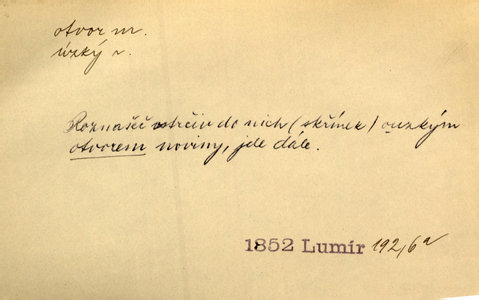 otvor m.
úzký o.
Roznašeč vstrčiv do nich (skřínek) ouzkým
otvorem noviny, jde dále.
1852 Lumír 192,6a